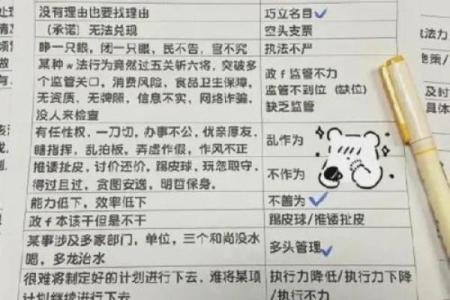 没有理由也要找理由 巧立名目
（承诺）无法兑现 空头支票
睁一只眼，闭一只眼，民不告，官不究 执法不严
某种w法行为竟然过五关斩六将，突破了
多个监管关口，消费风险，食品卫生保障，
无资质、无牌照，信息不实，网络诈骗，
没人来检查
政f监管不力
监管不到位（缺位）
缺乏监管
有任性权，一刀切，办事不公，优亲厚友，
瞎指挥，乱拍板，弄虚作假，作风不正
乱作为
推诿扯皮，讨价还价，踢皮球，玩忽职守，
得过且过，贪图安逸，明哲保身。
不作为
能力低下，效率低下 不善为
政f本该干但是不干 踢皮球/推诿扯皮
某事涉及多家部门，单位，三个和尚没水
喝，多龙治水
多头管理
很难将制定好的计划进行下去，难将某项
计划继续进行下去
执行力降低/执行力下降
/执行不力
处
执法力
及时
具体